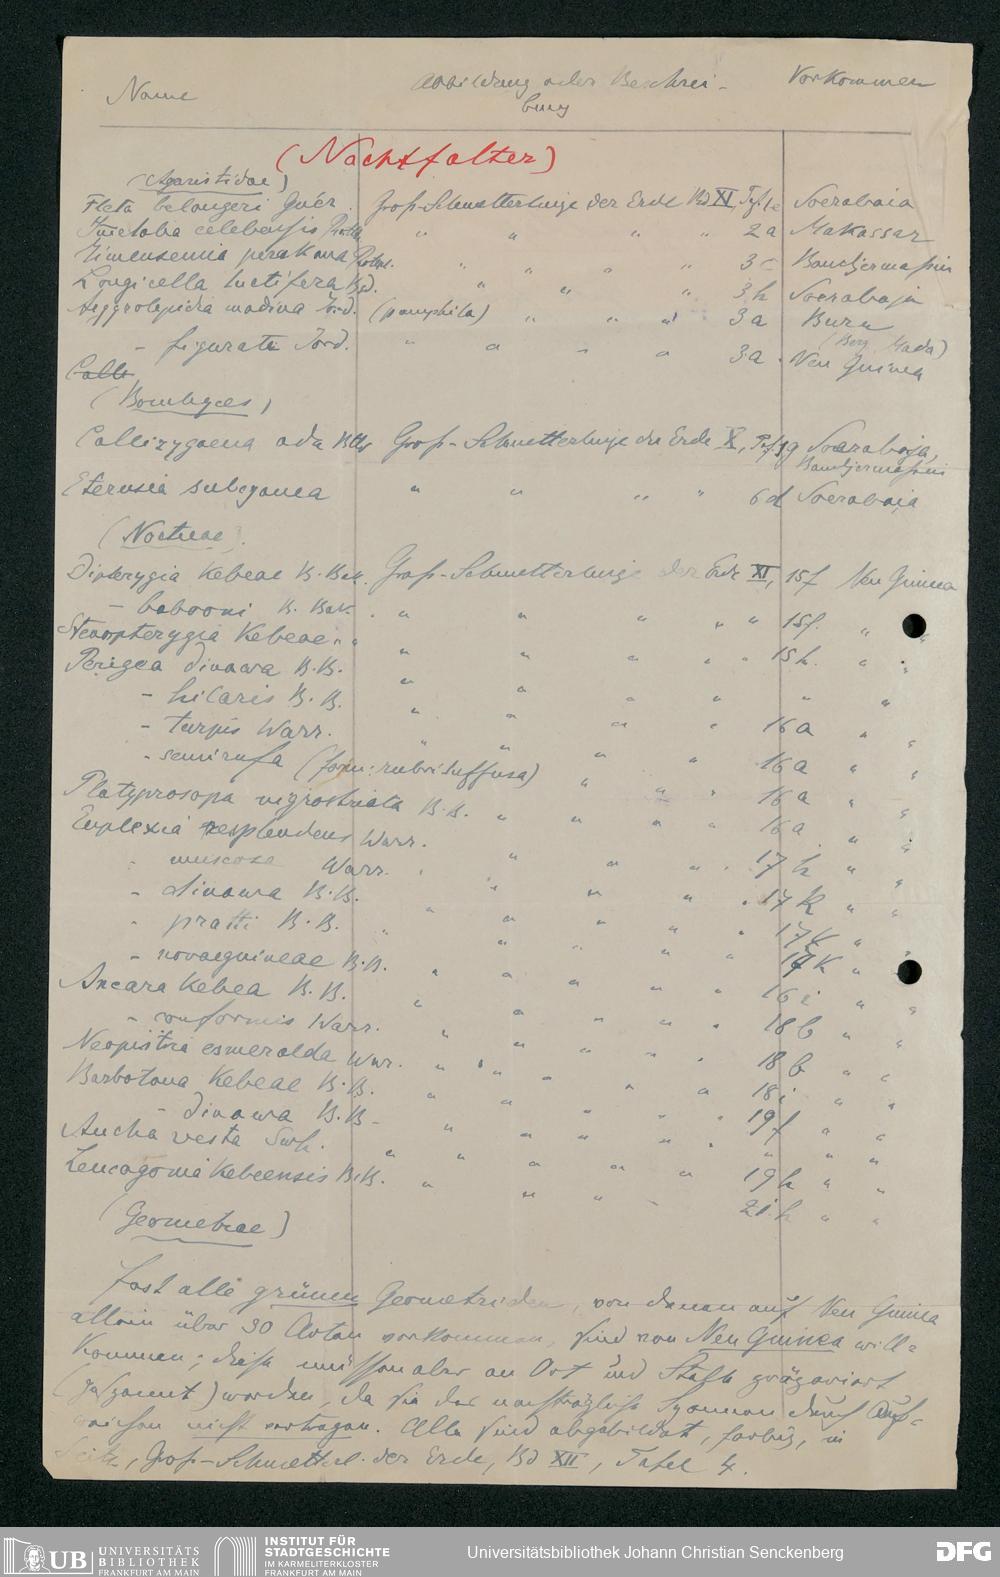 Name
Abbildung oder Beschrei-
bung
Vorkommen
(Nachtfalter)
(Agaristidae)
Fleta belangeri Guér. Groß-Schmetterlinge der Erde Bd XI, Taf. 1c Soerabaia
celebensis " " " " 2a Makassar
Zimensemia perakana " " " " 3c Bandjermaßin
Longicella luctifera " " " 3h Soerabaja
Aeggrolepidia madina Jord. (pamphila) " " " 3a Buru
- figurata Jord. " " " " 3a Neu Guinea
(Berg Mada)
Calli
(Bombyces)
Callizygaena ada Btlr Groß-Schmetterlinge der Erde X, Taf. 1g Soerabaja,
Bandjermaßin
Eterusia subcyanea " " " " 6d Soerabaia
(Noctuae).
Dipterygia Kebeae B. Bak. Groß-Schmetterlinge der Erde XI, 15f Neu Guinea
- babooni B. Bak. " " " " " 15f. " "
Stenopterygia Kebeae " " " " " " " 15h. " "
Perigea dinawa B.B. " " " " " "
- hilaris B.B. " " " " 16a " "
- turpis Warr. " " " " 16a " "
- semirufa (form: rubrisuffusa) " " " 16a " "
Platyprosopa nigrostriata B.B. " " " " 16a " "
Euplexia resplendens Warr. " " " " 17h " "
- muscosa Warr. " " " " 17k " "
- dinawa B.B. " " " " 17k "
- pratti B.B. " " " " 17k " "
- novaeguineae B.B. " " " " 16i " "
Ancara Kebea B.B. " " " " 18b " "
- conformis Warr. " " " " 18b " "
Neopistria esmeralda Warr. " " " " 18i " "
Barbotana Kebeae B.B. " " " " 19f " "
- dinawa B.B. " " " " " " "
Aucha vesta Swh. " " " " " 19h " "
Leucogonia Kebeensis B.B. " " " 21h " "
(Geometrae)
Fast alle grünen Geometriden, von denen auf Neu Guinea
allein über 30 Arten vorkommen, sind von Neu Guinea will-
kommen; diese müssen aber an Ort und Stelle präpariert
(gespannt) werden, da sie das nachträgliche Spannen durch Auf-
weichen nicht vertragen. Alle sind abgebildet, farbig, in
Seitz, Groß-Schmetterl. der Erde, Bd XII, Tafel 4.
UB UNIVERSITÄTS
BIBLIOTHEK
FRANKFURT AM MAIN
INSTITUT FÜR
STADTGESCHICHTE
IM KARMELITERKLOSTER
FRANKFURT AM MAIN
Universitätsbibliothek Johann Christian Senckenberg
DFG